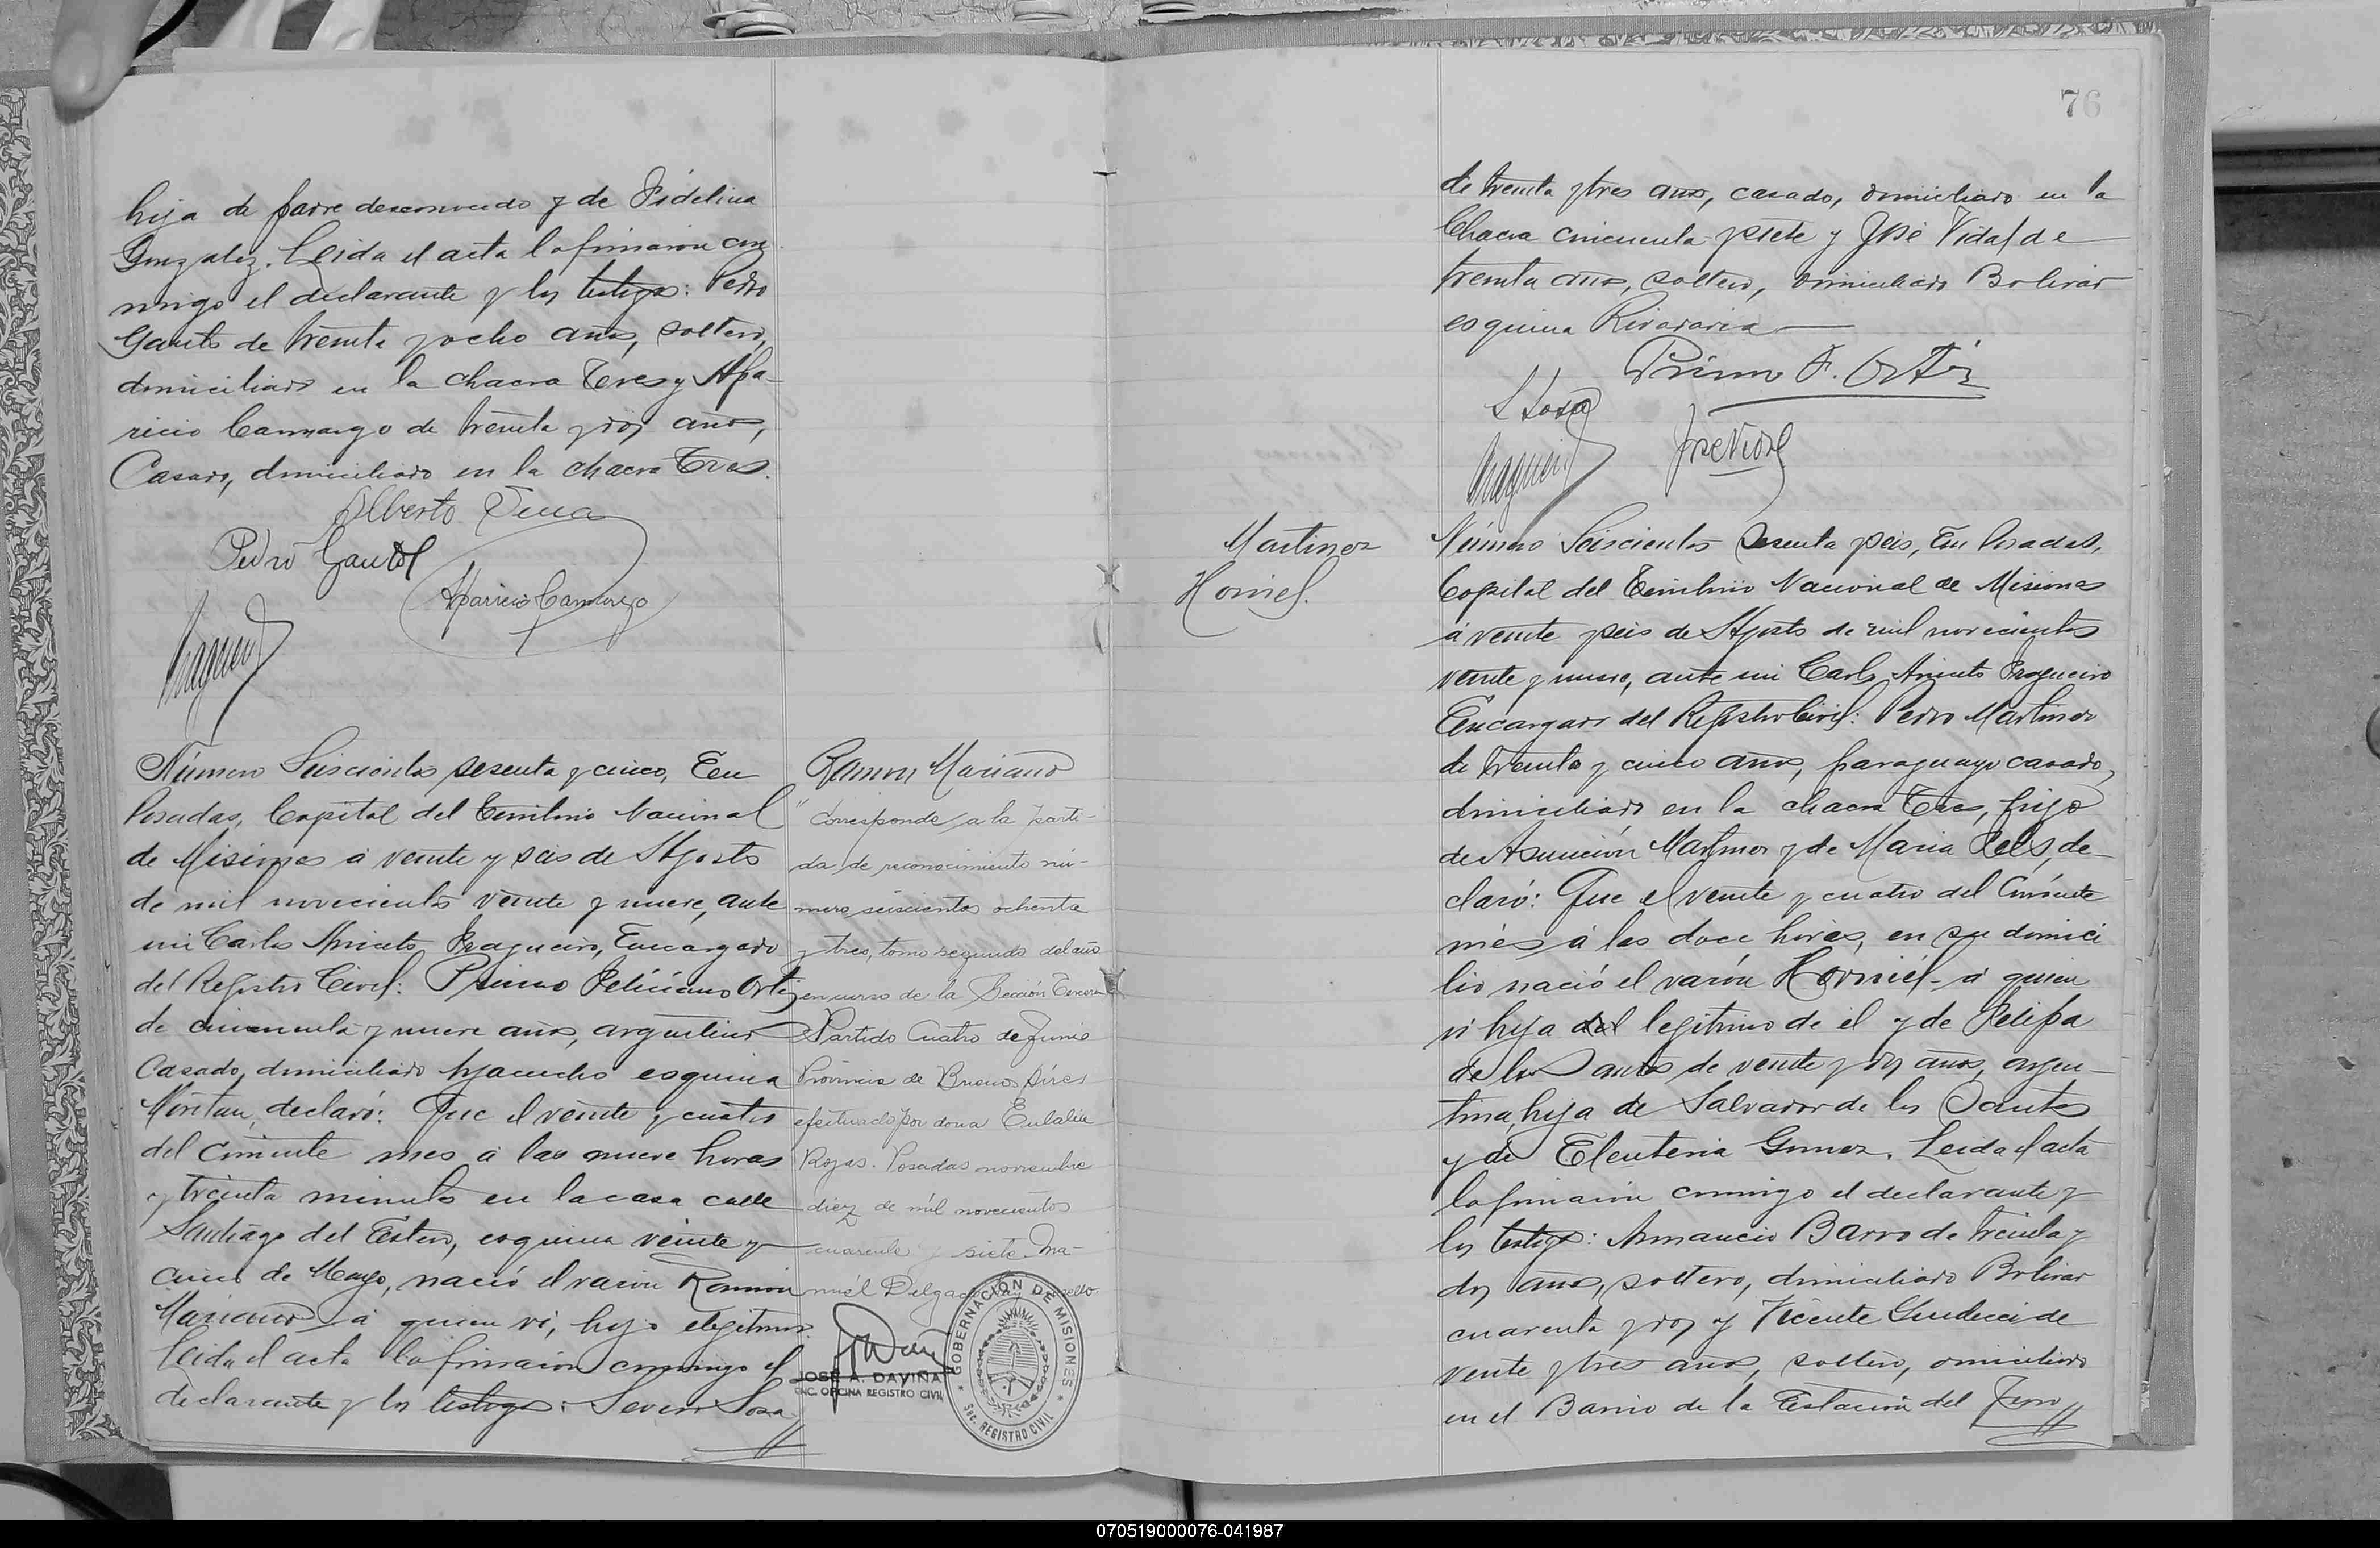 hija de padre desconocido y de Fidelina
Gonzalez. Leida el acta la firmaron con
migo el declarante y los testigos: Pedro
Gauto de treinta y ocho años, soltero,
domiciliado en la chacra Tres y Apa-
ricio Camargo de treinta y dos años,
Casado, domiciliado en la chacra Tres.
Alberto
Pedro Gauto
Aparicio Camargo
Número Seiscientos sesenta y cinco, En
Posadas, Capital del Territorio Nacional
de Misiones á veinte y seis de Agosto
de mil novecientos veinte y nueve, ante
mi Carlos Aniceto Fragueiro, Encargado
del Registro Civil: Primo Feliciano Ortiz
de cincuenta y nueve años, argentino
Casado, domiciliado Ayacucho esquina
declaró: Que el veinte y cuatro
del corriente mes a las nueve horas
y treinta minutos en la casa calle
Santiago del Estero, esquina veinte y
cinco de Mayo, nació el varon Ramón
Mariano á quien vi, hijo
Leida el acta la firmaron conmigo el
declarante y los testigos: Severo Sosa
Ramon Mariano
"Corresponde a la parti-
da de reconocimiento nú-
mero seiscientos ochenta
y tres, tomo segundo del año
en curso de la Sección Tercera
Partido Cuatro de Junio
Provincia de Buenos Aires
efectuado por doña Eulalia
Rojas. Posadas noviembre
diez de mil novecientos
cuarenta y siete. Ma-
nuel Delgado
JOSÉ A. DAVIÑA
ENC. OFICINA REGISTRO CIVIL
GOBERNACIÓN DE MISIONES
Sec. REGISTRO CIVIL
76
de treinta y tres años, casado, domiciliado en la
Chacra cincuenta y siete y José Vidal de
treinta años, soltero, domiciliado Bolivar
esquina Rivadavia
Primo F. Ortiz
S Sosa
José Vidal
Martinez
Horniel.
Número Seiscientos Sesenta y seis, En Posadas,
Capital del Territorio Nacional de Misiones
á veinte y seis de Agosto de mil novecientos
veinte y nueve, ante mi Carlos Aniceto Fragueiro
Encargado del Registro Civil: Pedro Martinez
de treinta y cinco años, paraguayo casado,
domiciliado en la chacra Tres, hijo
de Asunción Martinez y de Maria de-
claró: Que el veinte y cuatro del Corriente
mes á las doce horas, en su domici
lio nació el varón Horniel á quien
vi hijo del legitimo de el y de Felipa
de los Santos de veinte y dos años, argen-
tina, hija de Salvador de los Santos
y de Eleuteria Gomez. Leida el acta
la firmaron conmigo el declarante y
los testigos: Amancio Barro de treinta y
dos años, soltero, domiciliado Bolivar
cuarenta y dos y Vicente de
veinte y tres años, soltero, domiciliado
en el Barrio de la Estación del Ferro
070519000076-041987